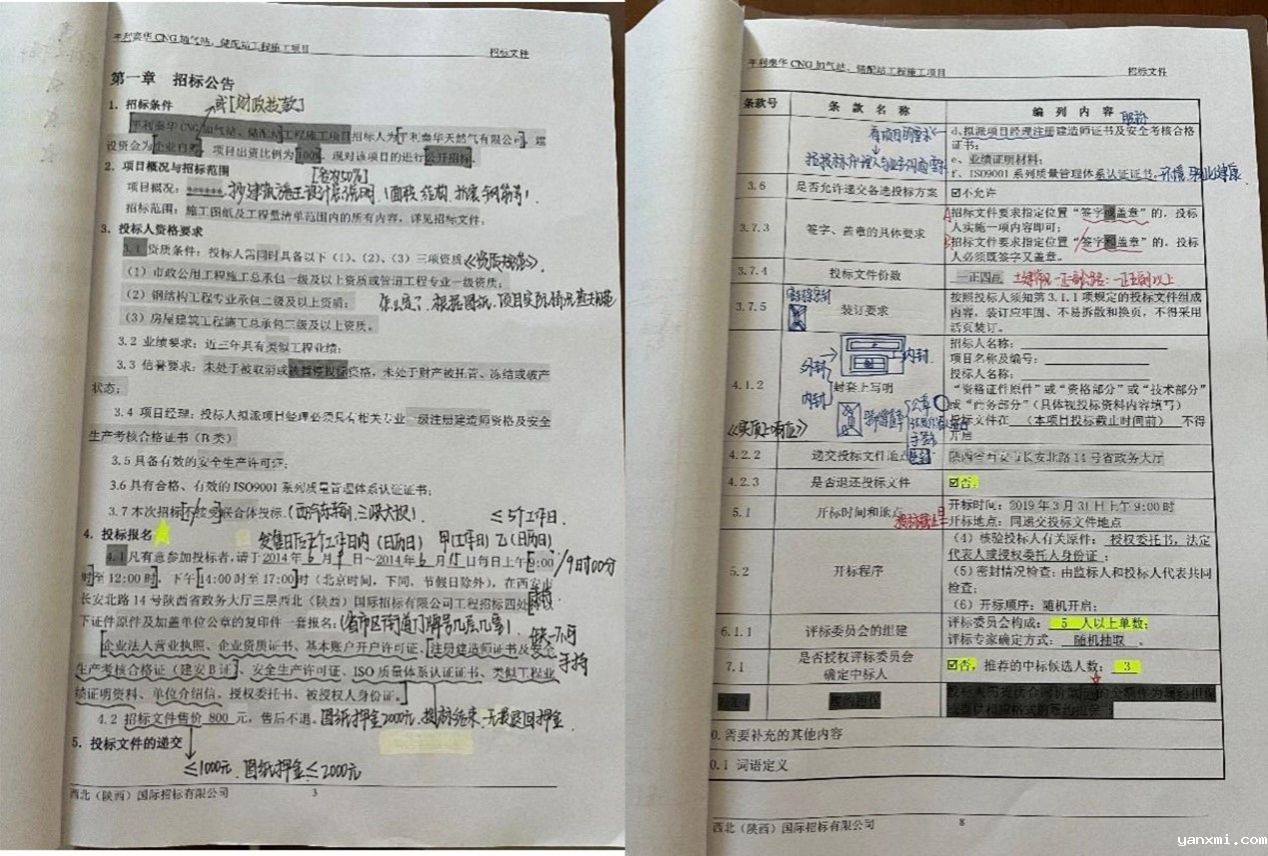 平利泰华CNG加气站、储配站工程施工项目 招标文件
第一章 招标公告
或[财政拨款]
1. 招标条件
平利泰华CNG加气站、储配站工程施工项目招标人为[平利泰华天然气有限公司],建
设资金为[企业自筹],项目出资比例为[100%],现对该项目的进行[公开招标]。
2. 项目概况与招标范围
项目概况:
招标范围:施工图纸及工程量清单范围内的所有内容,详见招标文件。
3. 投标人资格要求
3.1 资质条件:投标人需同时具备以下(1)、(2)、(3)三项资质《资质标准》.
(1)市政公用工程施工总承包一级及以上资质或管道工程专业一级资质;
(2)钢结构工程专业承包二级及以上资质;
怎么定?根据图纸、项目实际情况
(3)房屋建筑工程施工总承包二级及以上资质。
3.2 业绩要求:近三年具有类似工程业绩;
3.3 信誉要求:未处于被取消或被暂停投标资格,未处于财产被托管、冻结或破产
状态;
3.4 项目经理:投标人拟派项目经理必须具有相关专业一级注册建造师资格及安全
生产考核合格证书(B类)
3.5 具备有效的安全生产许可证;
3.6 具有合格、有效的ISO9001系列质量管理体系认证证书;
3.7 本次招标[不接受]联合体投标.
≤5个工作日.
4. 投标报名
发售日历五个工作日内(日历) 甲(工作日) 乙(日历)
4.1 凡有意参加投标者,请于2014年6月9日~2014年6月15日每日上午[9:00 /9时00分
时至12:00时,下午[14:00时至17:00]时(北京时间,下同,节假日除外),在西安市
长安北路14号陕西省政务大厅三层西北(陕西)国际招标有限公司工程招标四处持以
下证件原件及加盖单位公章的复印件一套报名:(省市区街道门牌号几层几室).
缺一不可
[企业法人营业执照、企业资质证书、基本账户开户许可证、注册建造师证书及安全
生产考核合格证(建安B证)、安全生产许可证、ISO质量体系认证证书、类似工程业
绩证明资料、单位介绍信、授权委托书、被授权人身份证。]
4.2 招标文件售价800元,售后不退。图纸押金2000元,投标结束,无损退回押金
5. 投标文件的递交
≤1000元.图纸押金≤2000元
西北(陕西)国际招标有限公司 3
平利泰华CNG加气站、储配站工程施工项目 招标文件
条款号 条款名称 编列内容
看项目的要求
d、拟派项目经理注册建造师证书及安全考核合格
证书;
e、业绩证明材料;
f、ISO9001系列质量管理体系认证证书、环境,职业健康
3.6 是否允许递交备选投标方案 ☑不允许
3.7.3 签字、盖章的具体要求
A招标文件要求指定位置“签字或盖章”的,投标
人实施一项内容即可;
B招标文件要求指定位置“签字和盖章”的,投标
人必须既签字又盖章。
3.7.4 投标文件份数 一正四副
3.7.5 装订要求
按照投标人须知第3.1.1项规定的投标文件组成
内容,装订应牢固、不易拆散和换页,不得采用
活页装订。
外封 内封
内封
4.1.2 封套上写明
招标人名称:
项目名称及编号:
投标人名称:
“资格证件原件”或“资格部分”或“技术部分”
或“商务部分”(具体视投标资料内容填写)
投标文件在 (本项目投标截止时间前) 不得
开启
公章
《实质上响应》
4.2.2 递交投标文件地点 陕西省西安市长安北路14号省政务大厅
4.2.3 是否退还投标文件 ☑否;
5.1 开标时间和地点
开标时间:2019年3月31日上午9:00时
开标地点:同递交投标文件地点
5.2 开标程序
(4)核验投标人有关原件: 授权委托书,法定
代表人或授权委托人身份证;
(5)密封情况检查:由监标人和投标人代表共同
检查;
(6)开标顺序:随机开启;
6.1.1 评标委员会的组建
评标委员会构成: 5 人以上单数;
评标专家确定方式: 随机抽取 。
7.1 是否授权评标委员会
确定中标人
☑否,推荐的中标候选人数: 3
0. 需要补充的其他内容
0.1 词语定义
西北(陕西)国际招标有限公司 8
yanxmi.com